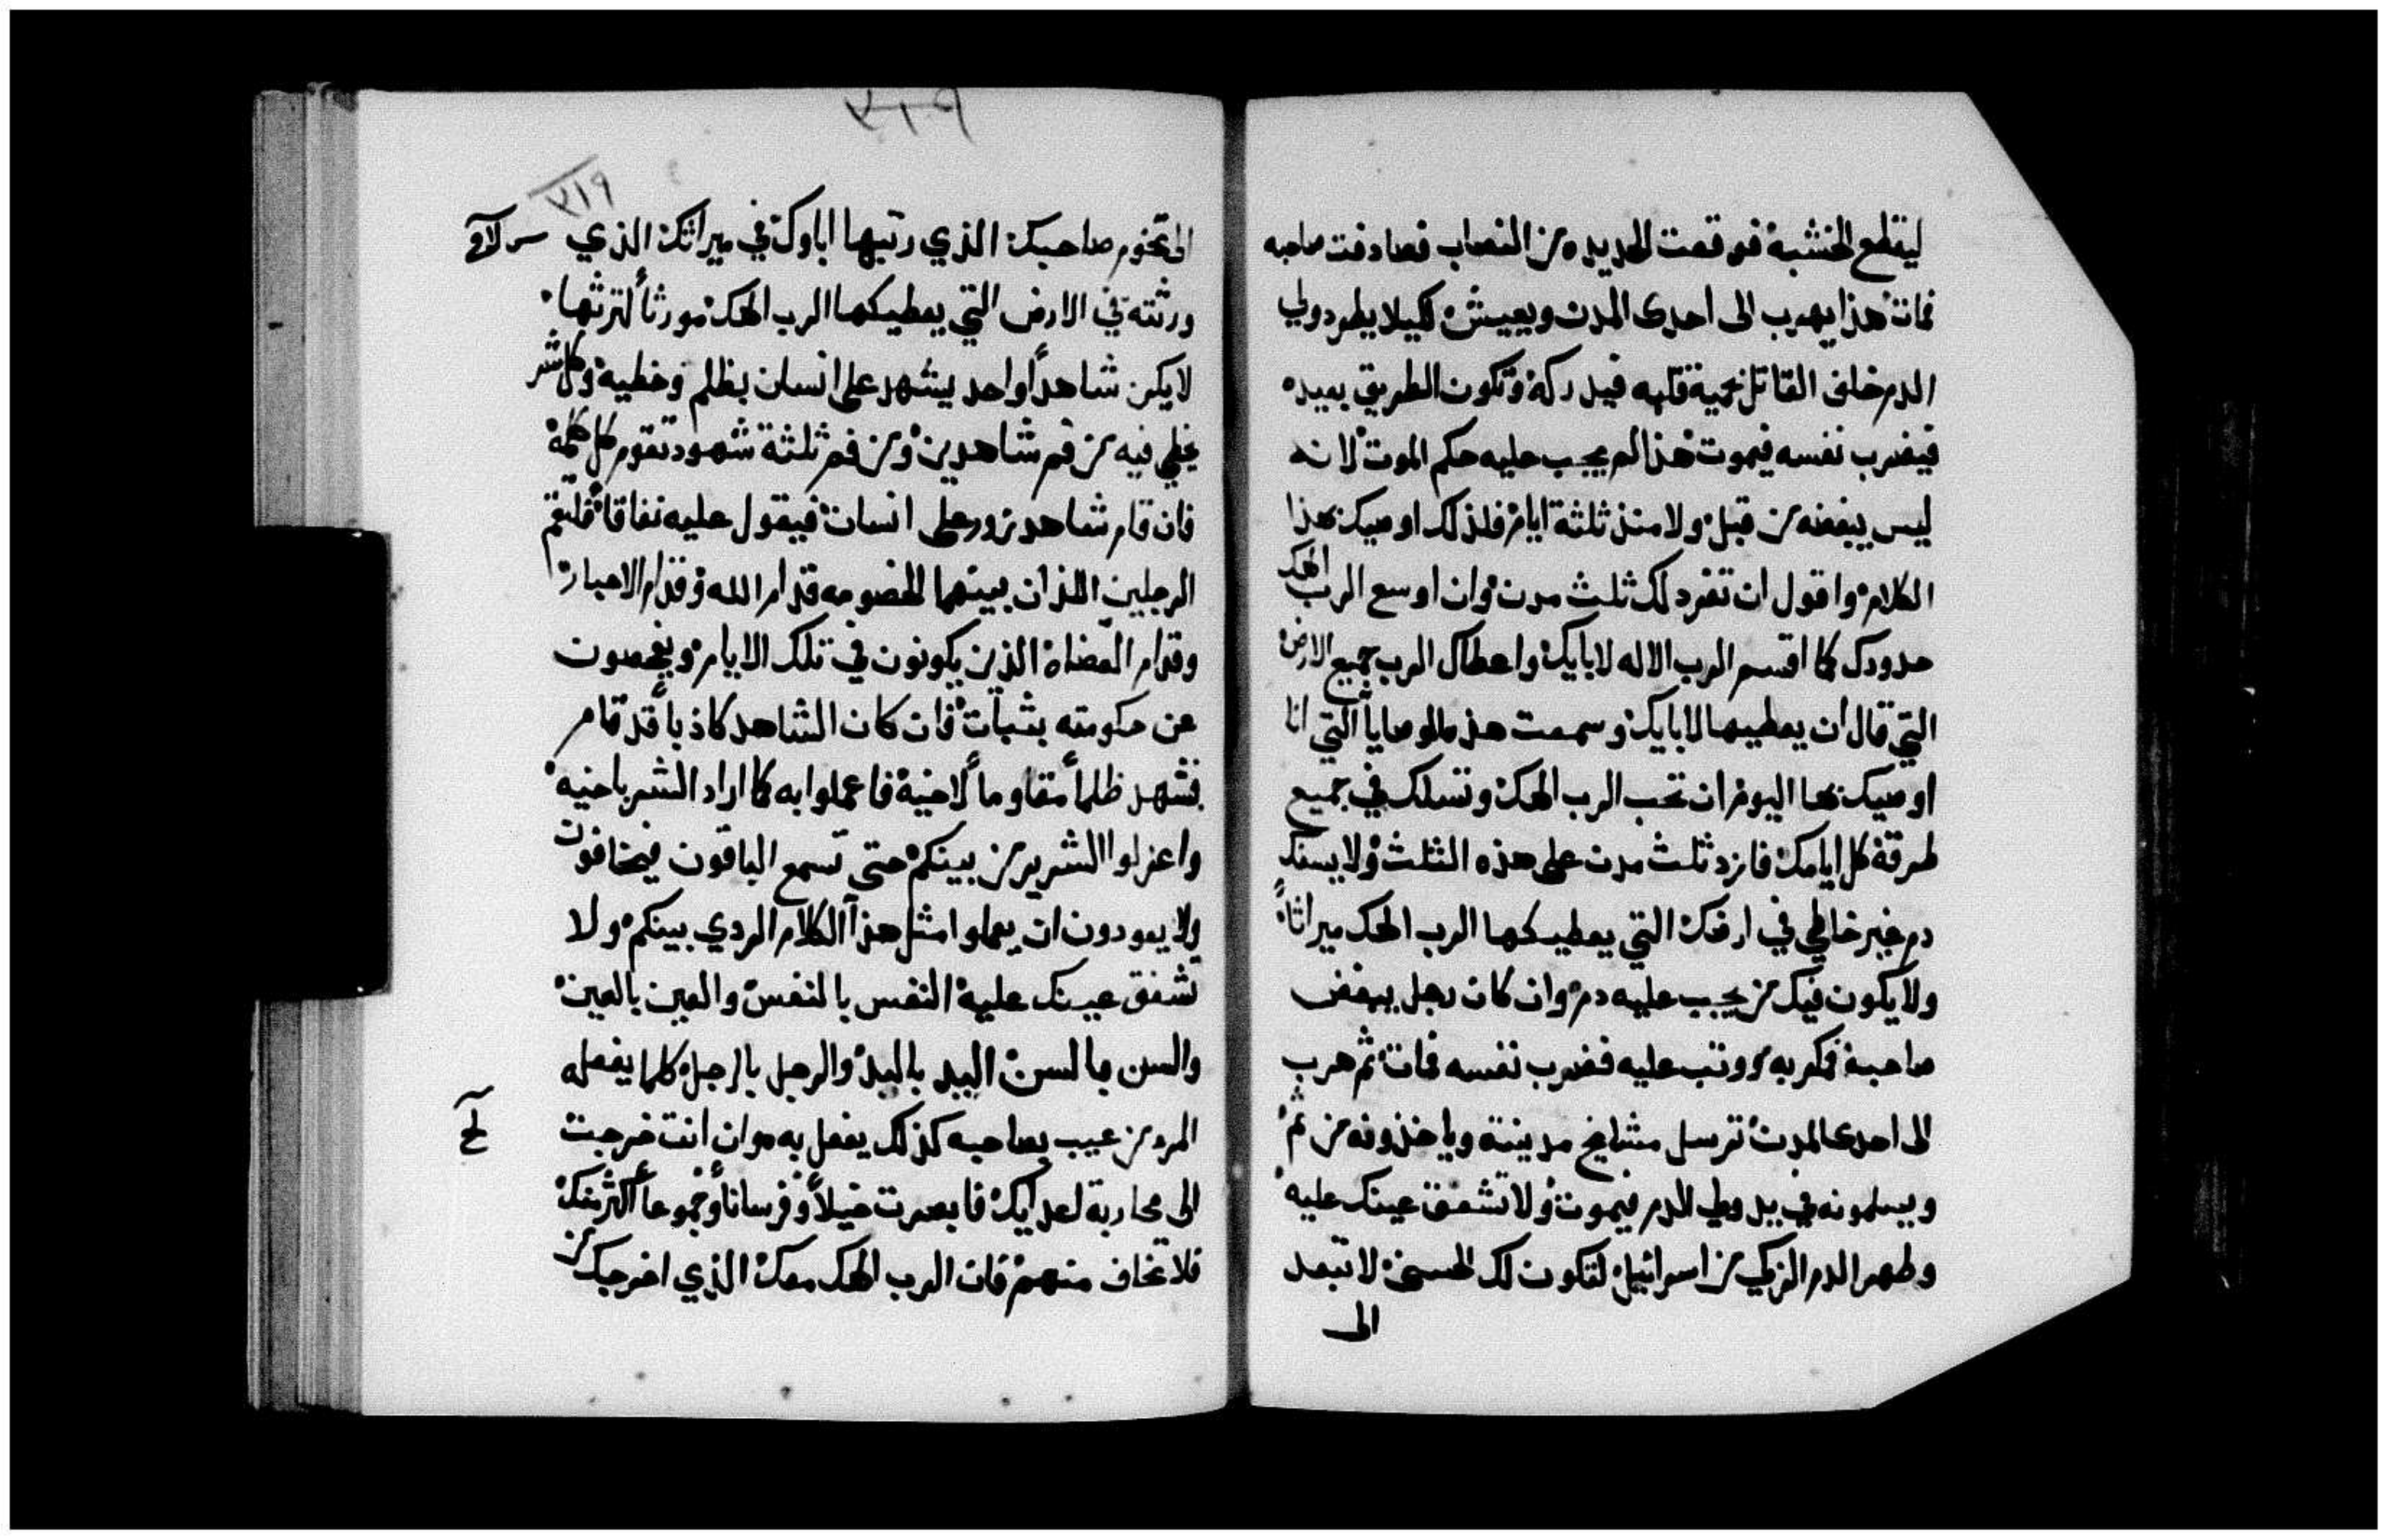 ليقطع الخشبة فوقعت الحديده من النصاب فصادفت صاحبه
فمات هذا يهرب الى احدى المدن ويعيش لكيلا يطرد ولي
الدم خلف القاتل بحمية قلبه فيدركه وتكون الطريق بعيده
فيضرب نفسه فيموت هذا لم يجب عليه حكم الموت لانه
ليس يبغضه من قبل ولا منذ ثلثة ايام فلذلك اوصيك بهذا
الكلام واقول ان تفرد لك ثلث مدن وان اوسع الرب الهك
حدودك كما اقسم الرب الاله لابايك واعطاك الرب جميع الارض
التي قال ان يعطيها لابايك وسمعت هذه الوصايا التي انا
اوصيك بها اليوم ان تحب الرب الهك وتسلك في جميع
طرقه كل ايامك فازد ثلث مدن على هذه الثلث ولا يسفك
دم غير خاطي في ارضك التي يعطيكها الرب الهك ميراثاً
ولا يكون فيك من يجب عليه دم وان كان رجل يبغض
صاحبه فمكر به ووتب عليه فضرب نفسه فمات ثم هرب
الى احدى المدن ترسل مشايخ مدينته وياخذونه من ثم
ويسلمونه في يد ولي الدم فيموت ولا تشفق عينك عليه
وطهر الدم الزكي من اسرائيل لتكون لك الحسنى لا تبعد
الى
٢١٧
الى تخوم صاحبك الذي رتبها اباوك في ميراثك الذي
ورثته في الارض التي يعطيكها الرب الهك مورثاً لترثها
لا يكن شاهداً واحد يشهد على انسان بظلم وخطية وكل شر
يخطي فيه من فم شاهدين ومن فم ثلثة شهود تقوم كل كلمة
فان قام شاهد زور على انسان فيقول عليه نفاقاً فليقم
الرجلين اللذان بينهما الخصومه قدام الله وقدام الاحبار
وقدام القضاة الذين يكونون في تلك الايام ويفحصون
عن حكومته بثبات فان كان الشاهد كاذباً قد قام
فشهد ظلماً مقاوماً لاخيه فاعملوا به كما اراد الشر باخيه
واعزلوا الشرير من بينكم حتى تسمع الباقون فيخافون
ولا يعودون ان يعملوا مثل هذا الكلام الردي بينكم ولا
تشفق عينك عليه النفس بالنفس والعين بالعين
والسن بالسن اليد باليد والرجل بالرجل كلما يفعله
المرء من عيب بصاحبه كذلك يفعل به وان انت خرجت
الى محاربة اعدايك فابصرت خيلاً وفرساناً وجموعاً اكثر منك
فلا تخاف منهم فان الرب الهك معك الذي اخرجك من